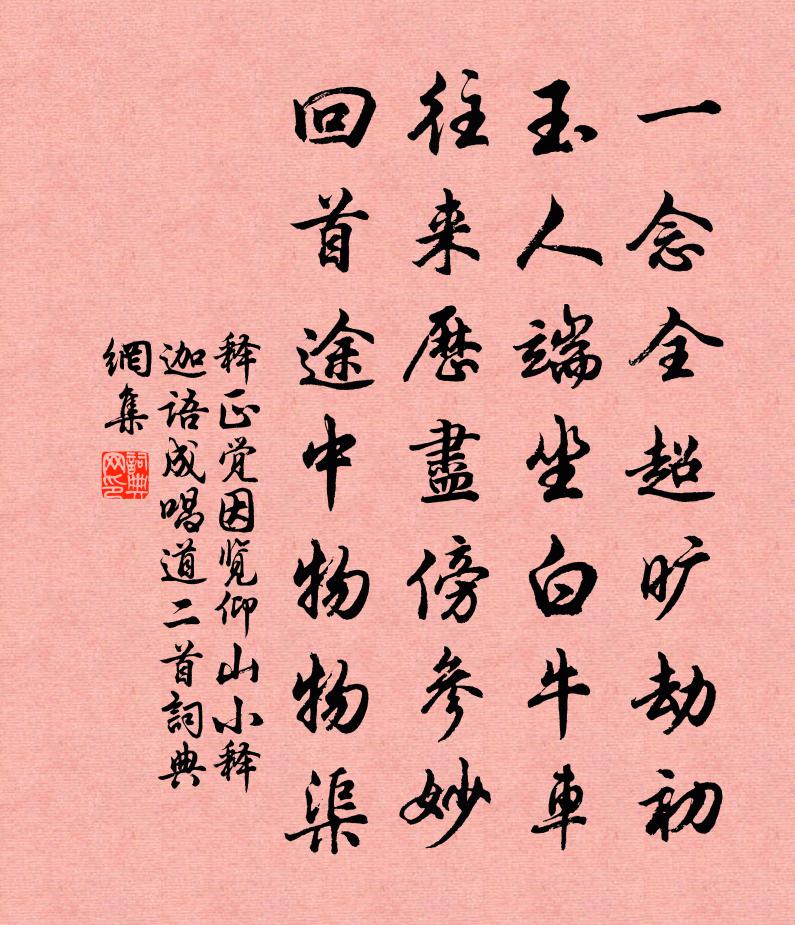 一念全超旷劫初
玉人端坐白牛車
往来歷盡傍參妙
回首途中物物渠
释正觉因览仰山小释
迦语成唱道二首詞典
網集
詞典
网印